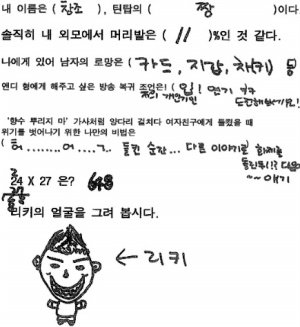 내 이름은 ( 창조 ), 틴탑의 ( 짱 )이다.
솔직히 내 외모에서 머리발은 ( // )%인 것 같다.
나에게 있어 남자의 로망은 ( 카드, 지갑, 차키 ) 등
앤디 형에게 해주고 싶은 방송 복귀 조언은! ( 입! 연기
도전해보시기요!
'향수 뿌리지 마' 가사처럼 양다리 걸치다 여자친구에게 들켰을 때
위기를 벗어나기 위한 나만의 비법은
( 허........어....ㄱ. 들킨 순간... 다른 이야기로 화제를
돌린후!! 다음
~~ 얘기
24 X 27 은? 648
리키의 얼굴을 그려 봅시다.
← 리키